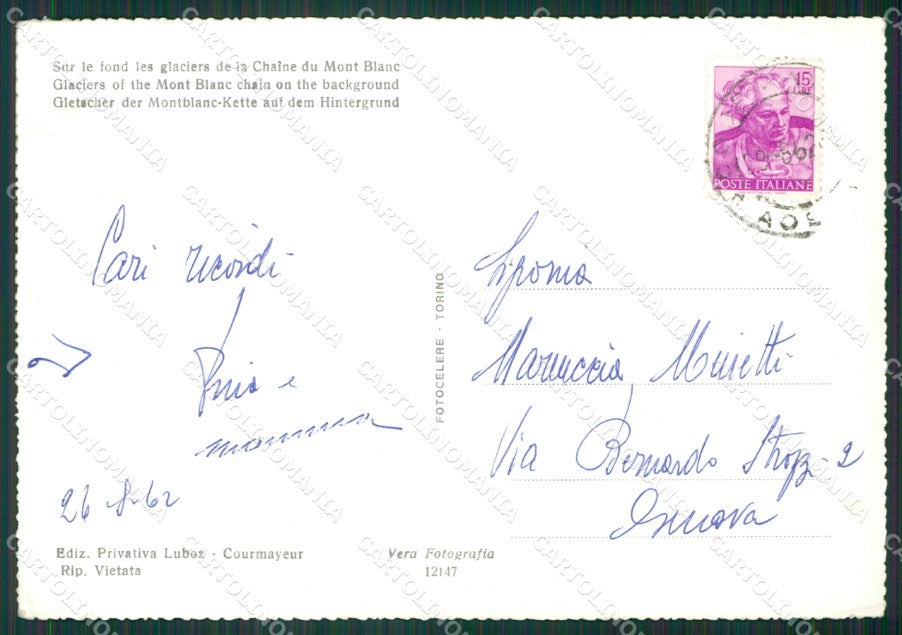 Sur le fond les glaciers de la Chaîne du Mont Blanc
Glaciers of the Mont Blanc chain on the background
Gletscher der Montblanc-Kette auf dem Hintergrund
15
LIRE
POSTE ITALIANE
Cari ricordi
Pina e
mamma
26-8-62
FOTOCELERE - TORINO
Maruccia
Via Bernardo Strozzi 2
Genova
Ediz. Privativa Luboz - Courmayeur
Rip. Vietata
Vera Fotografia
12147
CARTOLINOMANIA